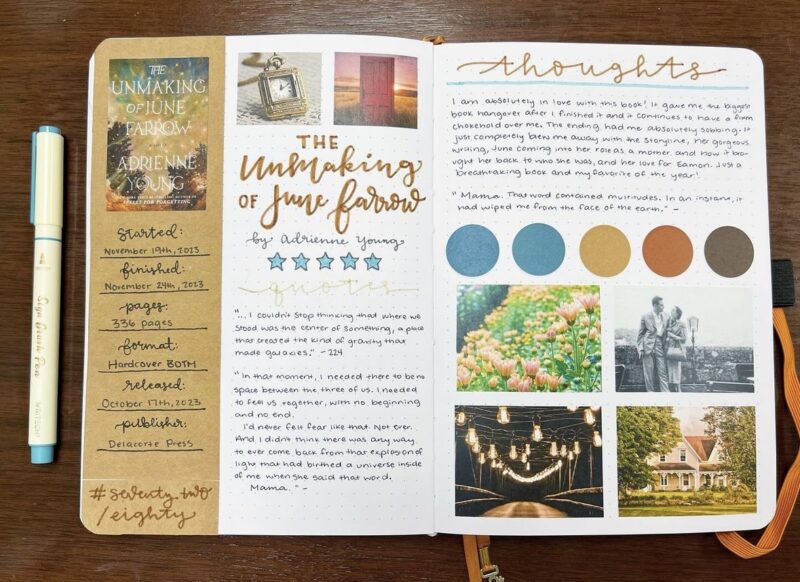 Sign Brush Pen
THE
UNMAKING
OF JUNE
FARROW
ADRIENNE
YOUNG
NEW YORK TIMES BESTSELLING AUTHOR OF
SPELLS FOR FORGETTING
started:
November 19th, 2023
finished:
November 24th, 2023
pages:
336 pages
format:
Hardcover BOTM
released:
October 17th, 2023
publisher:
Delacorte Press
#seventy two
/eighty
THE
Unmaking
OF June Farrow
by Adrienne Young
quotes
"... I couldn't stop thinking that where we
stood was the center of something, a place
that created the kind of gravity that
made galaxies." - 224
"In that moment, I needed there to be no
space between the three of us. I needed
to feel us together, with no beginning
and no end.
I'd never felt fear like that. Not ever.
And I didn't think there was any way
to ever come back from that explosion of
light that had birthed a universe inside
of me when she said that word.
Mama." -
thoughts
I am absolutely in love with this book! It gave me the biggest
book hangover after I finished it and it continues to have a firm
chokehold over me. The ending had me absolutely sobbing. It
just completely blew me away with the storyline, her gorgeous
writing, June coming into her role as a mother and how it bro-
ught her back to who she was, and her love for Eamon. Just a
breathtaking book and my favorite of the year!
"Mama. That word contained multitudes. In an instant, it
had wiped me from the face of the earth." -